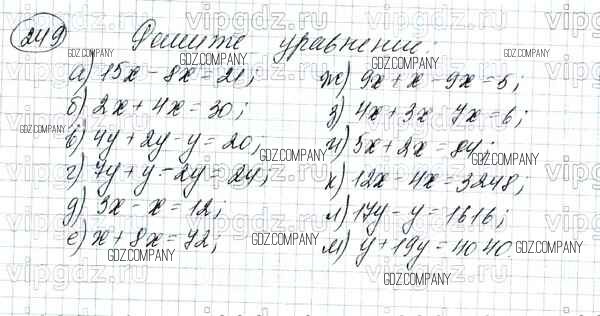 249 Решите уравнение:
а) 15x - 8x = 21;
б) 2x + 4x = 30;
в) 4y + 2y - y = 20;
г) 7y + y - 2y = 24;
д) 3x - x = 12;
е) x + 8x = 72;
ж) 9x + x - 9x = 5;
з) 4x + 3x - 7x = 6;
и) 5x + 2x = 84;
к) 12x - 4x = 3248;
л) 17y - y = 1616;
м) y + 19y = 4040.
vipgdz.ru
GDZ.COMPANY